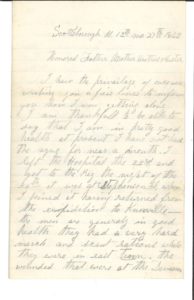 Scottsborough Al 12th mo 27th 1863
Honored Father Mother and sister
I have the privilege of once more
writing you a few lines to inform
you how I am getting along
I am thankful to be able to
say that I am in pretty good
health at present I have not had
the ague for near a month I
left the Hospital the 22d and
got to the Reg the night of the
it was at Stephenson when
I joined it having returned from
the expedition to Knoxville
the men are generally in good
health they had a very hard
march and scant rations while
they were in east Tenn. The
wounded that were at the